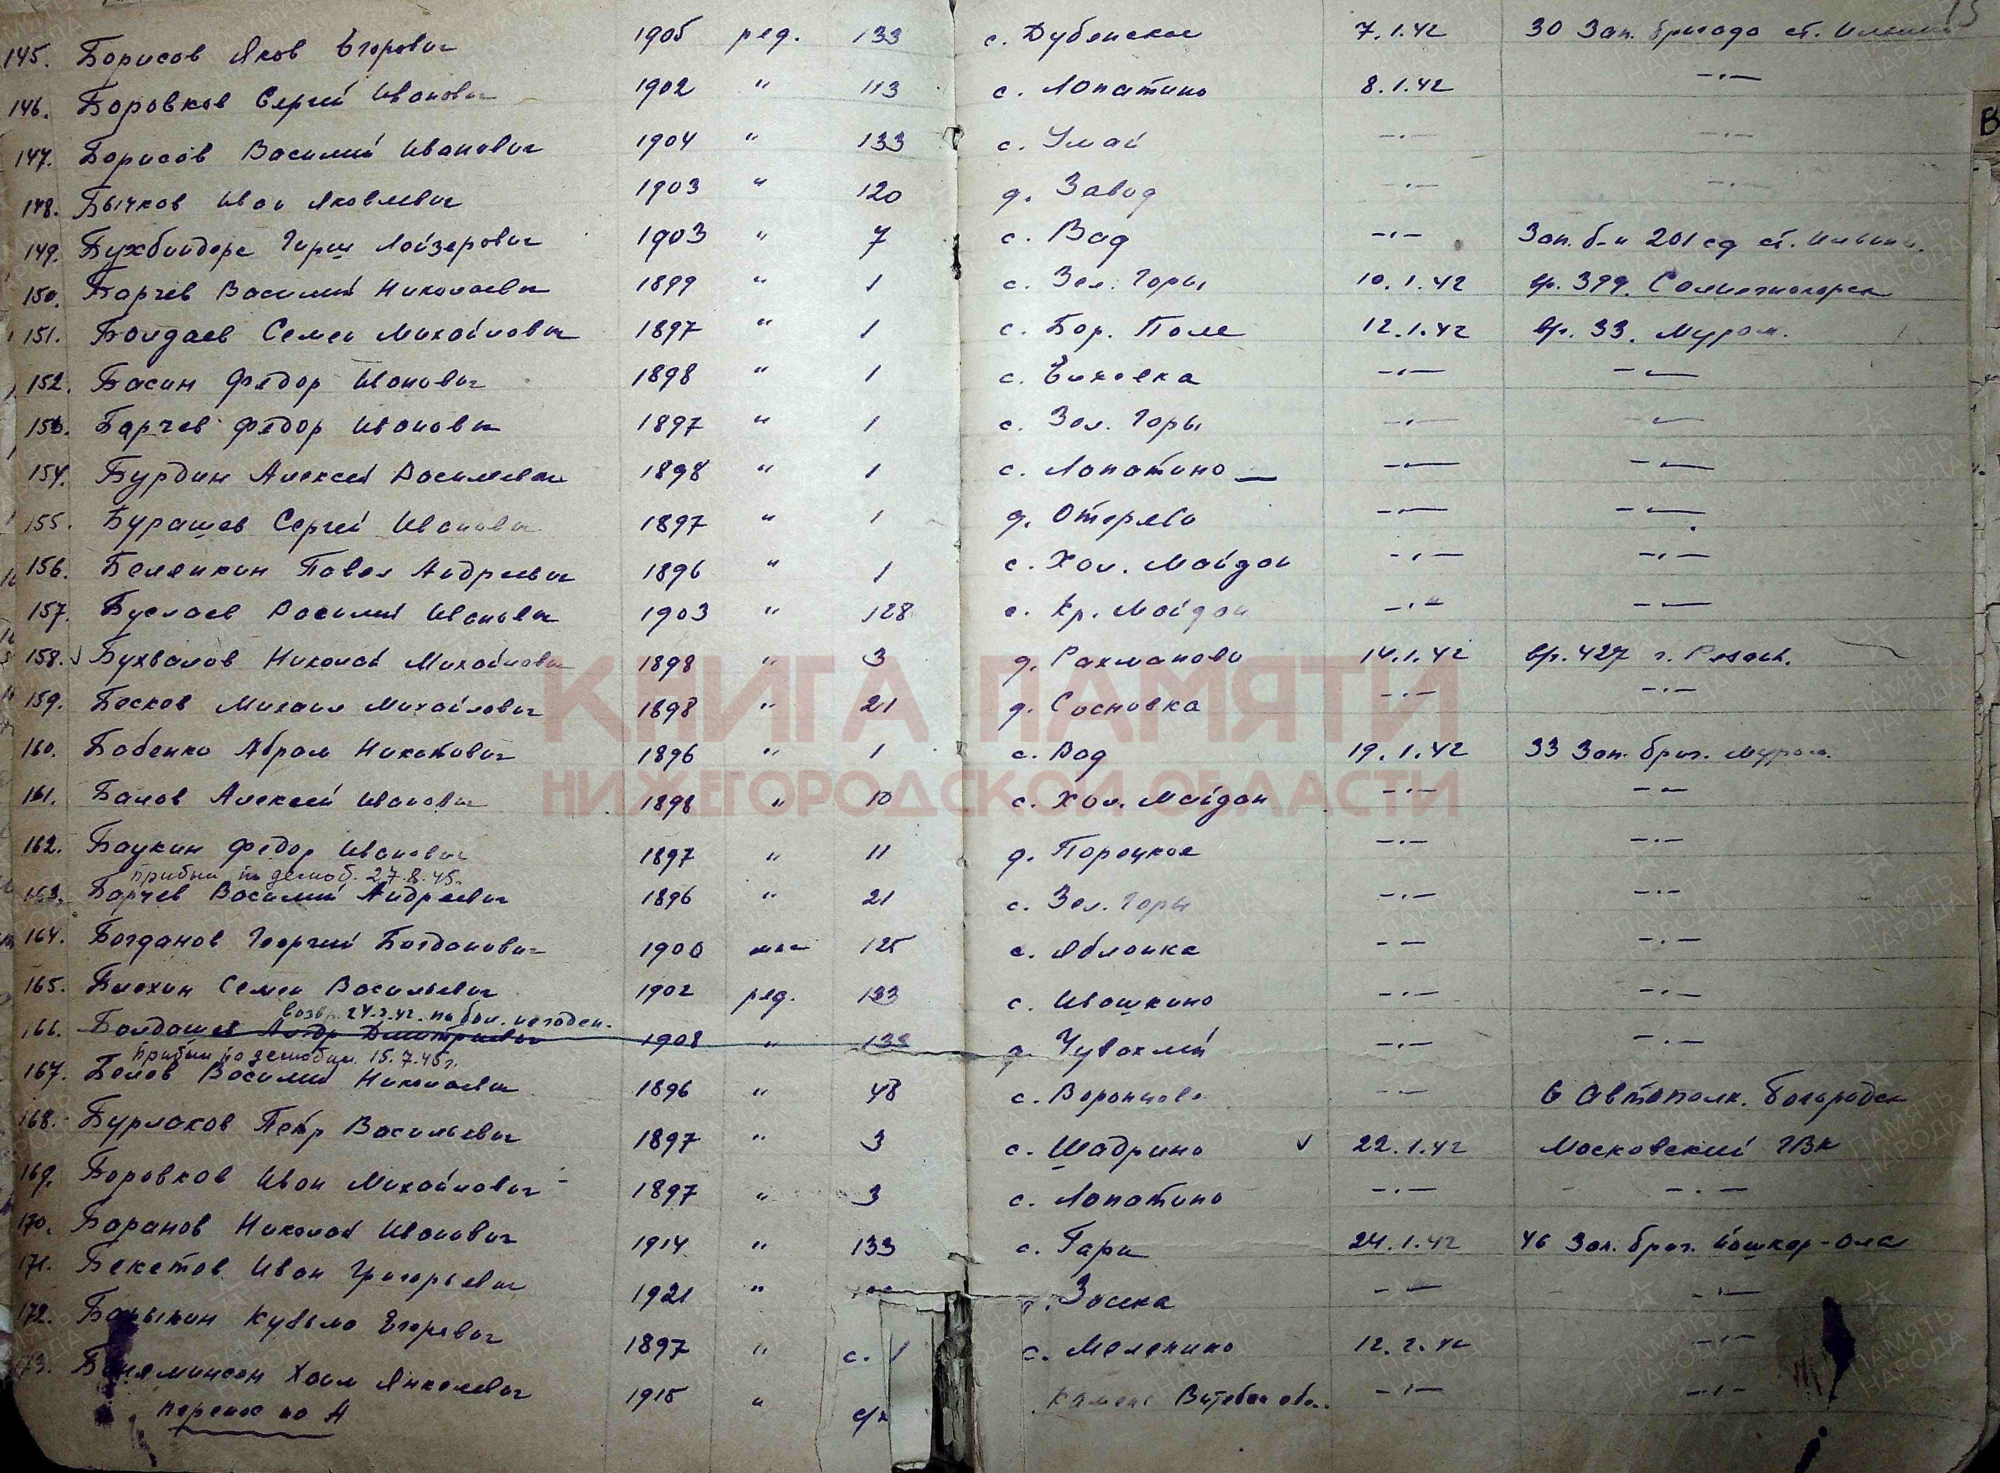 145. Борисов Яков Егорович 1905 ряд. 133 с. Дубенское 7.1.42 30 Зап. бригада ст.
146. Боровков Сергей Иванович 1902 " 113 с. Лопатино 8.1.42 -"-
147. Борисов Василий Иванович 1904 " 133 с. Умай -"- -"-
148. Бычков Иван Яковлевич 1903 " 120 д. Завод -"- -"-
149. Бухбиндере Гирш Лойзерович 1903 " 7 с. Вад -"- Зап. б-н 201 сд ст.
150. Барчев Василий Николаевич 1899 " 1 с. Зел. Горы 10.1.42 вр. 399. Солнечногорск
151. Болдаев Семен Михайлович 1897 " 1 с. Бор. Поле 12.1.42 вр. 33. Муром.
152. Басин Федор Иванович 1898 " 1 с. Елховка -"- -"-
153. Барчев Федор Иванович 1897 " 1 с. Зел. Горы -"- -"-
154. Бурдин Алексей Васильевич 1898 " 1 с. Лопатино -"- -"-
155. Бурашев Сергей Иванович 1897 " 1 д. Отерево -"- -"-
156. Белянкин Павел Андреевич 1896 " 1 с. Хол. Майдан -"- -"-
157. Буслаев Василий Иванович 1903 " 128 с. Кр. Майдан -"- -"-
158. Бухвалов Николай Михайлович 1898 " 3 д. Рахманово 14.1.42 вр. 427 г.
159. Босков Михаил Михайлович 1898 " 21 д. Сосновка -"- -"-
160. Бабенко Абрам 1896 " 1 с. Вад 19.1.42 33 Зап. бриг. Муром.
161. Балов Алексей Иванович 1898 " 10 с. Хол. Майдан -"- -"-
162. Баукин Федор Иванович 1897 " 11 д. Порецкое -"- -"-
прибыл по демоб. 27.8.45.
163. Барчев Василий Андреевич 1896 " 21 с. Зел. Горы -"- -"-
164. Богданов Георгий Богданович 1900 125 с. Яблонка -"- -"-
165. Блохин Семен Васильевич 1902 ряд. 133 с. Ивашкино -"- -"-
возвр. по бол. негоден.
166. Дмитриевич 1908 " 133 д. Чувахлей -"- -"-
прибыл по демобил. 15.7.45 г.
167. Белов Василий Николаевич 1896 " 48 с. Воронцово -"- 6 Автополк. Богородск
168. Бурлаков Петр Васильевич 1897 " 3 с. Шадрино 22.1.42 Московский ГВК
169. Боровков Иван Михайлович 1897 " 3 с. Лопатино -"- -"-
170. Баранов Николай Иванович 1914 " 133 с. Гари 24.1.42 46 Зап. бриг. Йошкар-Ола
171. Бекетов Иван Григорьевич 1921 " Засека -"- -"-
172. Кузьма Егорович 1897 " с. 1 с. Меленино 12.2.42 -"-
173. Хаим Янкелевич 1915 " с/х Витебск обл. -"- -"-
перенос на А
КНИГА ПАМЯТИ
НИЖЕГОРОДСКОЙ ОБЛАСТИ
В
ПАМЯТЬ НАРОДА